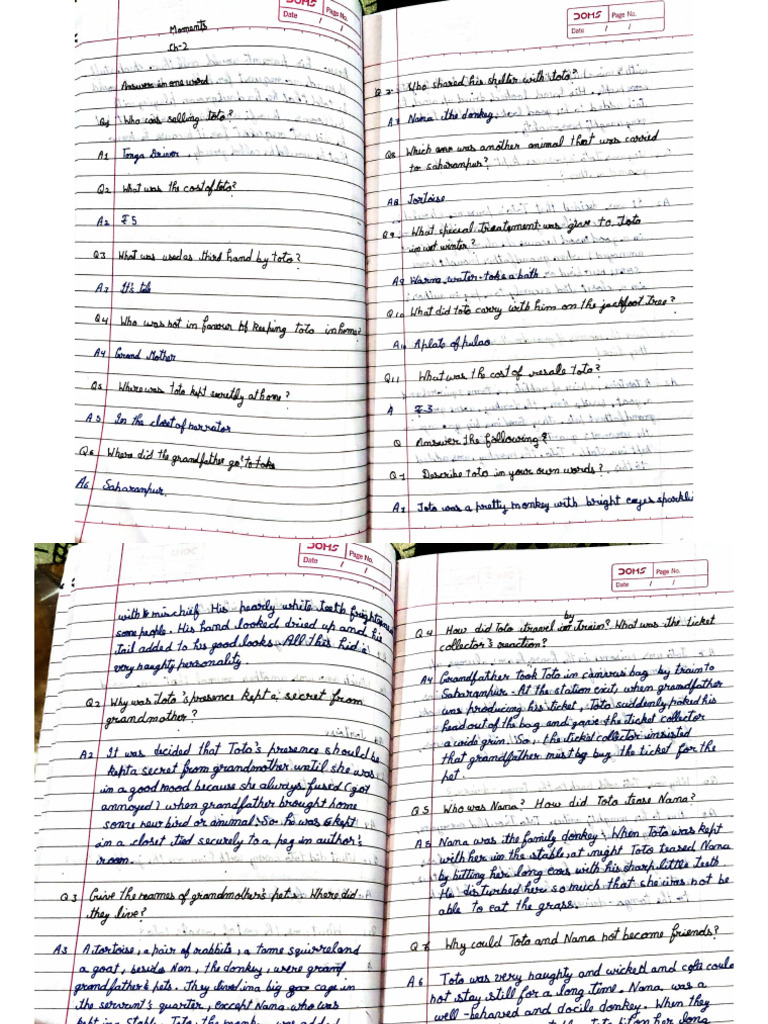 DOMS
Page No.
Date / /
Moments
Ch-2
Answer in one word
Q1 Who was salling Toto?
A1 Tonga Driver.
Q2 What was the cost of toto?
A2 ₹ 5
Q3 What was used as third hand by toto?
A3 It's tale
Q4 Who was not in favour of keeping Toto in home?
A4 Grand Mother
Q5 Where was Toto kept secretly at home?
A5 In the closet of narrator
Q6 Where did the grandfather go to take
A6 Saharanpur.
DOMS
Page No.
Date / /
Q 7. Who shared his shelter with toto?
A7 Nana the donkey.
Q8 Which one was another animal that was carried
to saharanpur?
A8 Tortoise
Q9 What special Treatement was give to Toto
in wet winter?
A9 Warm water-take a bath
Q10 What did toto carry with him on the jackfoot tree?
A10 A plate of pulao
Q11 What was the cost of resale Toto?
A ₹ 3
Q Answer the following?
Q1 Describe Toto in your own words?
A1 Toto was a pretty monkey with bright eyes sparkli
DOMS
Page No.
Date / /
with mischief. His pearly white teeth frightened
some people. His hand looked dried up and his
Tail added to his good looks. All this hid is
very naughty personality
Q2 Why was Toto's presence kept a secret from
grandmother?
A2 It was decided that Toto's presence should be
kept a secret from grandmother until she was
in a good mood because she always fused (got
annoyed) when grandfather brought home
some new bird or animal. So he was kept
in a closet tied securely to a peg in author's
room.
Q3 Give the names of grandmother's pets. Where did
they live?
A3 A Tortoise, a pair of rabbits, a tame squirrel and
a goat, beside Nan, the donkey, were grand
grandfather's pets. They lived in a big cage in
the servent's quarter, except Nana who was
kept in stable. Toto, the monkey was added
DOMS
Page No.
Date / /
by
Q4 How did Toto travel in train? What was the ticket
collector's reaction?
A4 Grandfather took Toto in canvas bag by train to
Saharanpur. At the station exit, when grandfather
was producing his ticket, Toto suddenly poked his
head out of the bag and gave the ticket collector
a wide grin. So, the ticket collector insisted
that grandfather must buy the ticket for the
pet.
Q5 Who was Nana? How did Toto tease Nana?
A5 Nana was the family donkey. When Toto was kept
with her in the stable, at night Toto teased Nana
by bitting her long ears with his sharp little teeth
He disturbed her so much that she was not be
able to eat the grass.
Q6 Why could Toto and Nana not become friends?
A6 Toto was very naughty and wicked and could
not stay still for a long time. Nana was a
well-behaved and docile donkey. When they
her long